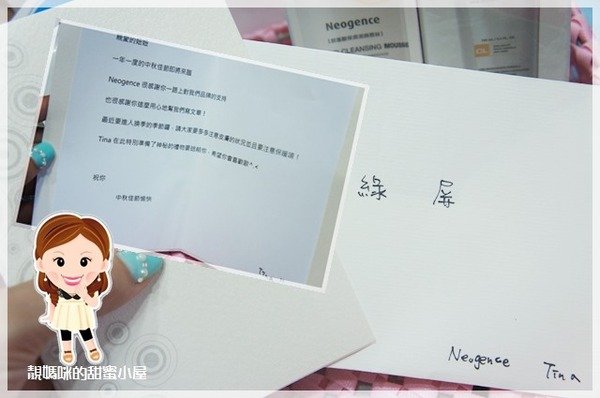 Neogence
CLEANSING MOUSSE
親愛的妞妞
一年一度的中秋佳節即將來臨
Neogence 很感謝你一路上對我們品牌的支持
也很感謝你這麼用心地幫我們寫文章！
最近要進入換季的季節囉，請大家要多多注意皮膚的狀況並且要注意保暖唷！
Tina 在此特別準備了神秘的禮物要送給你，希望你會喜歡歐^.<
祝你
中秋佳節愉快
Tina
綠 屏
Neogence Tina
靚媽咪的甜蜜小屋